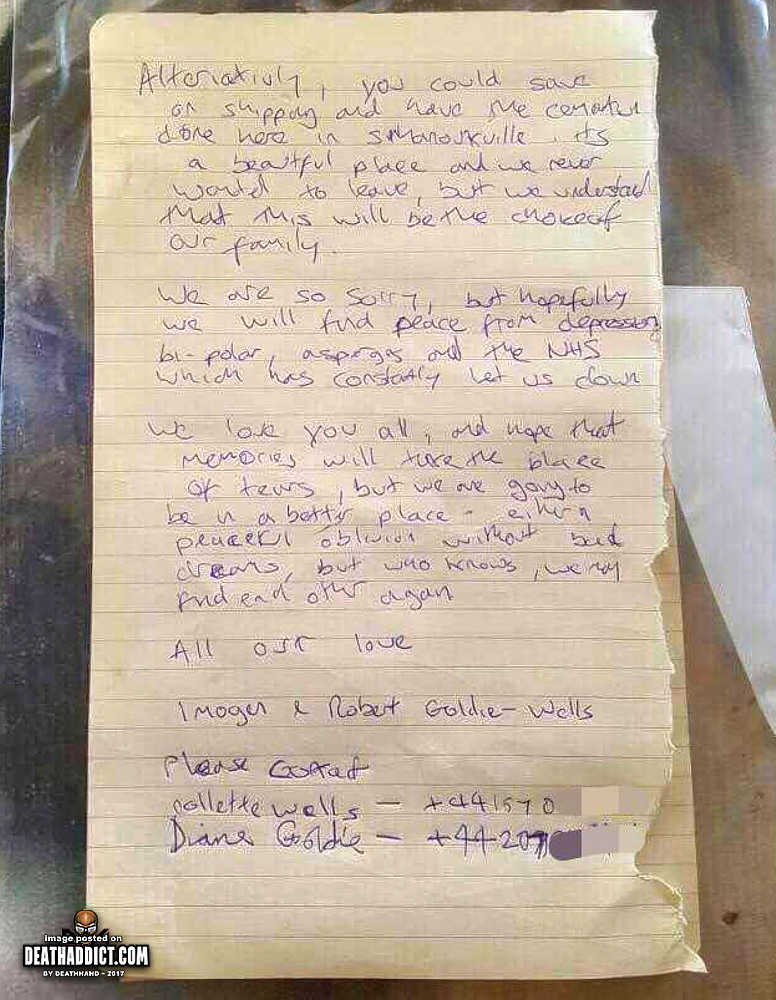 Alternativly, you could save
on shipping and have the cremation
done here in sihanoukville. its
a beautiful place and we never
wanted to leave, but we understand
that this will be the choice of
our family.
We are so sorry, but hopefully
we will find peace from depression,
bi-polar, aspergers and the NHS
which has constantly let us down
We love you all, and hope that
memories will take the place
of tears, but we are going to
be in a better place - either a
peaceful oblivion without bad
dreams, but who knows, we may
find each other again
All our love
Imogen & Robert Goldie-Wells
Please contact
collette wells - +441570
Diane Goldie - +44207
image posted on
DEATHADDICT.COM
BY DEATHHAND - 2017